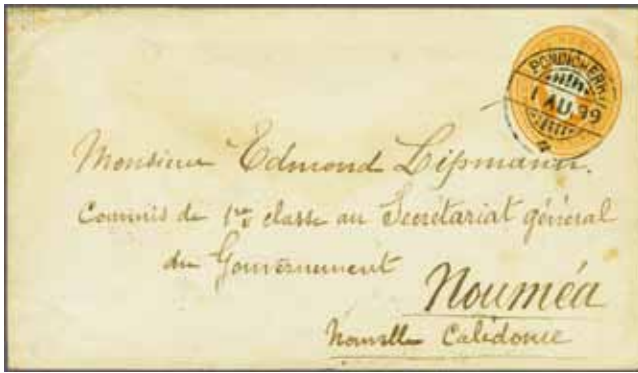 PONDICHERRY
1 AU. 99
Monsieur Edmond Lipmann.
Commis de 1re classe au Secrétariat général
du Gouvernement
Nouméa
Nouvelle Calédonie